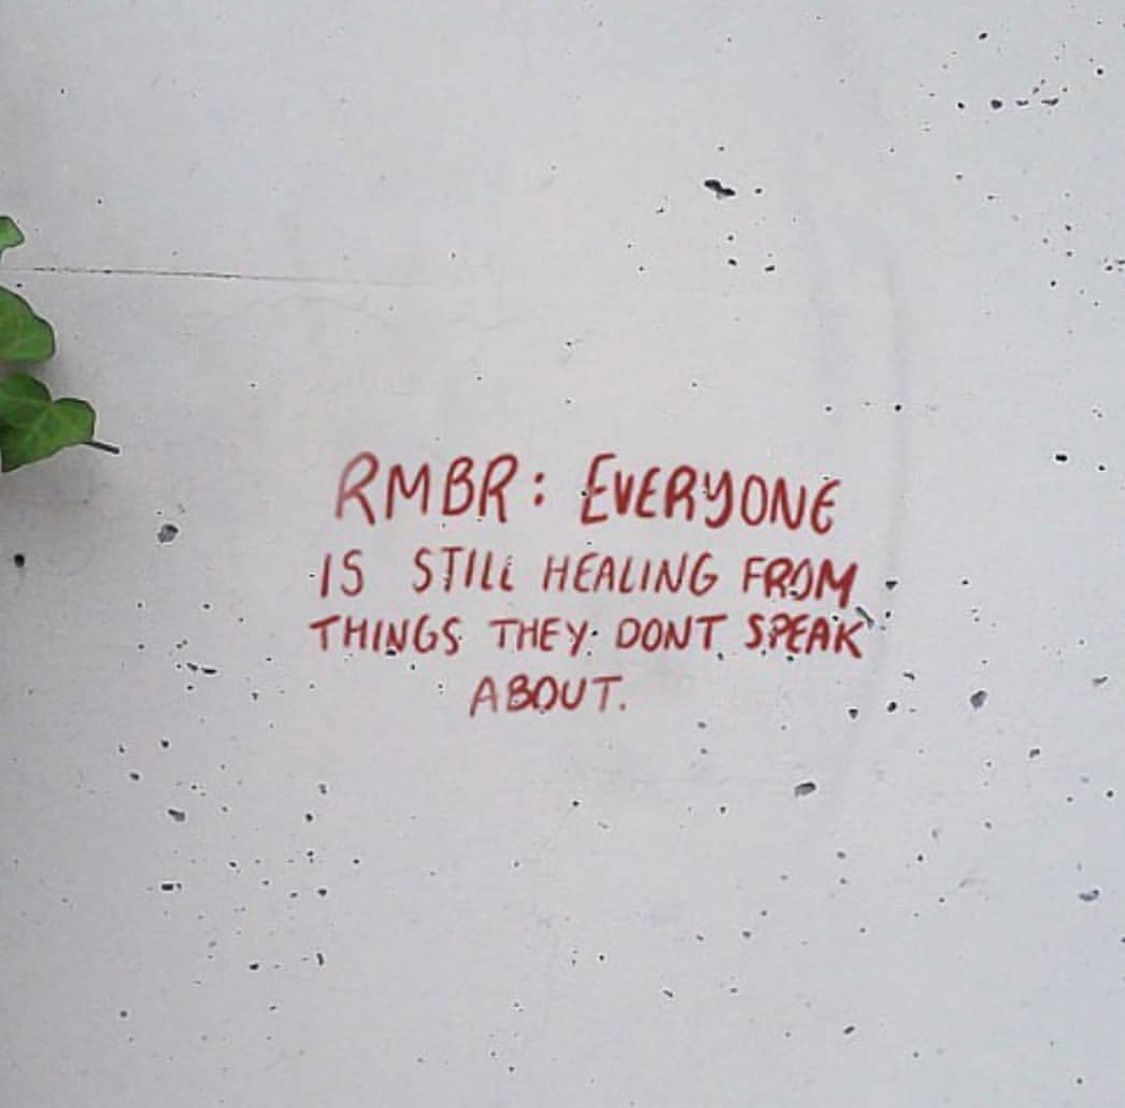 RMBR: EVERYONE
IS STILL HEALING FROM
THINGS THEY DONT SPEAK
ABOUT.